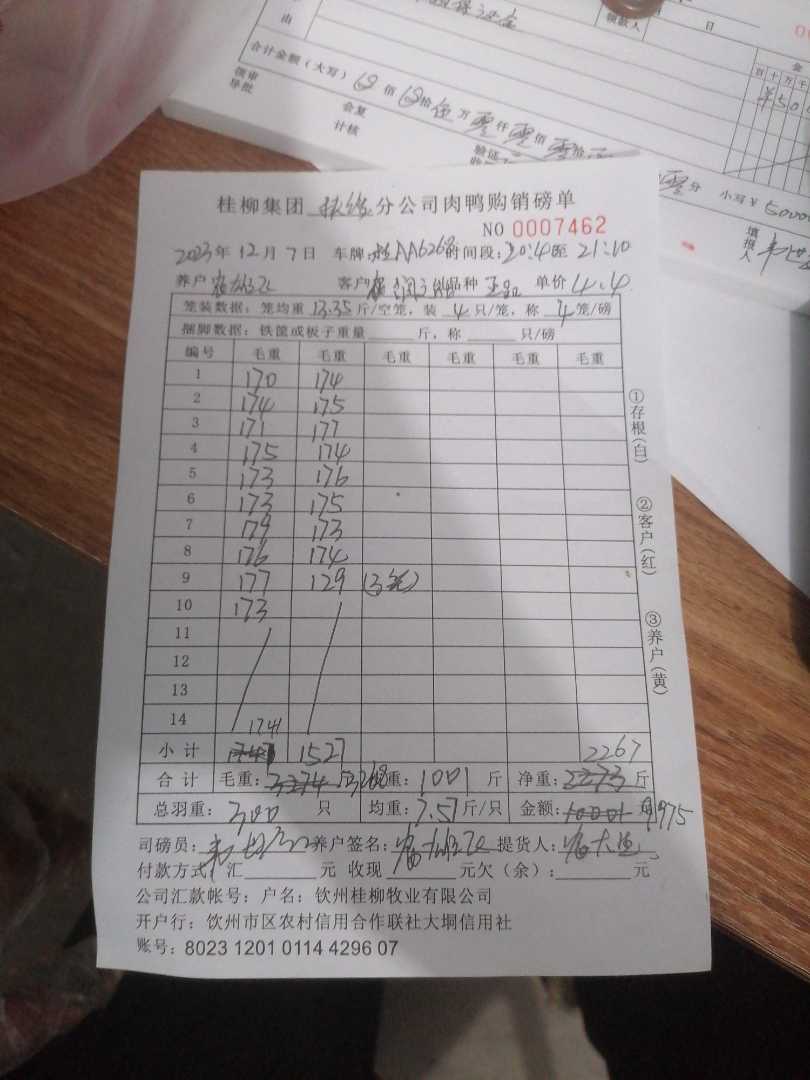 由
领款人
日
金
合计金额（大写） 佰 拾 伍 万 零 仟 零 佰 零 拾
百 十 万 千
¥ 5 0
领审
导批
会复
计核
验证
零 分 小写¥ 50000
填报人
桂柳集团 扶绥 分公司肉鸭购销磅单
NO 0007462
2023 年 12 月 7 日 车牌: AA6268 时间段: 20:40至 21:10
养户 客户 品种 单价 4.4
笼装数据: 笼均重 13.35 斤/空笼, 装 4 只/笼, 称 4 笼/磅
捆脚数据: 铁筐或板子重量 斤, 称 只/磅
编号 毛重 毛重 毛重 毛重 毛重 毛重
1 170 174
2 174 175
3 171 177
4 175 174
5 173 176
6 173 175
7 179 173
8 176 174
9 177 129 (3笼)
10 173
11
12
13
14
1741
小计 1527 2267
合计 毛重: 3274 3268 重: 1001 斤 净重: 2273 斤
总羽重: 300 只 均重: 7.57 斤/只 金额: 10001 元 9975
司磅员: 养户签名: 提货人:
付款方式 汇 元 收现 元欠（余）: 元
公司汇款帐号: 户名: 钦州桂柳牧业有限公司
开户行: 钦州市区农村信用合作联社大垌信用社
账号: 8023 1201 0114 4296 07
①存根(白)
②客户(红)
③养户(黄)